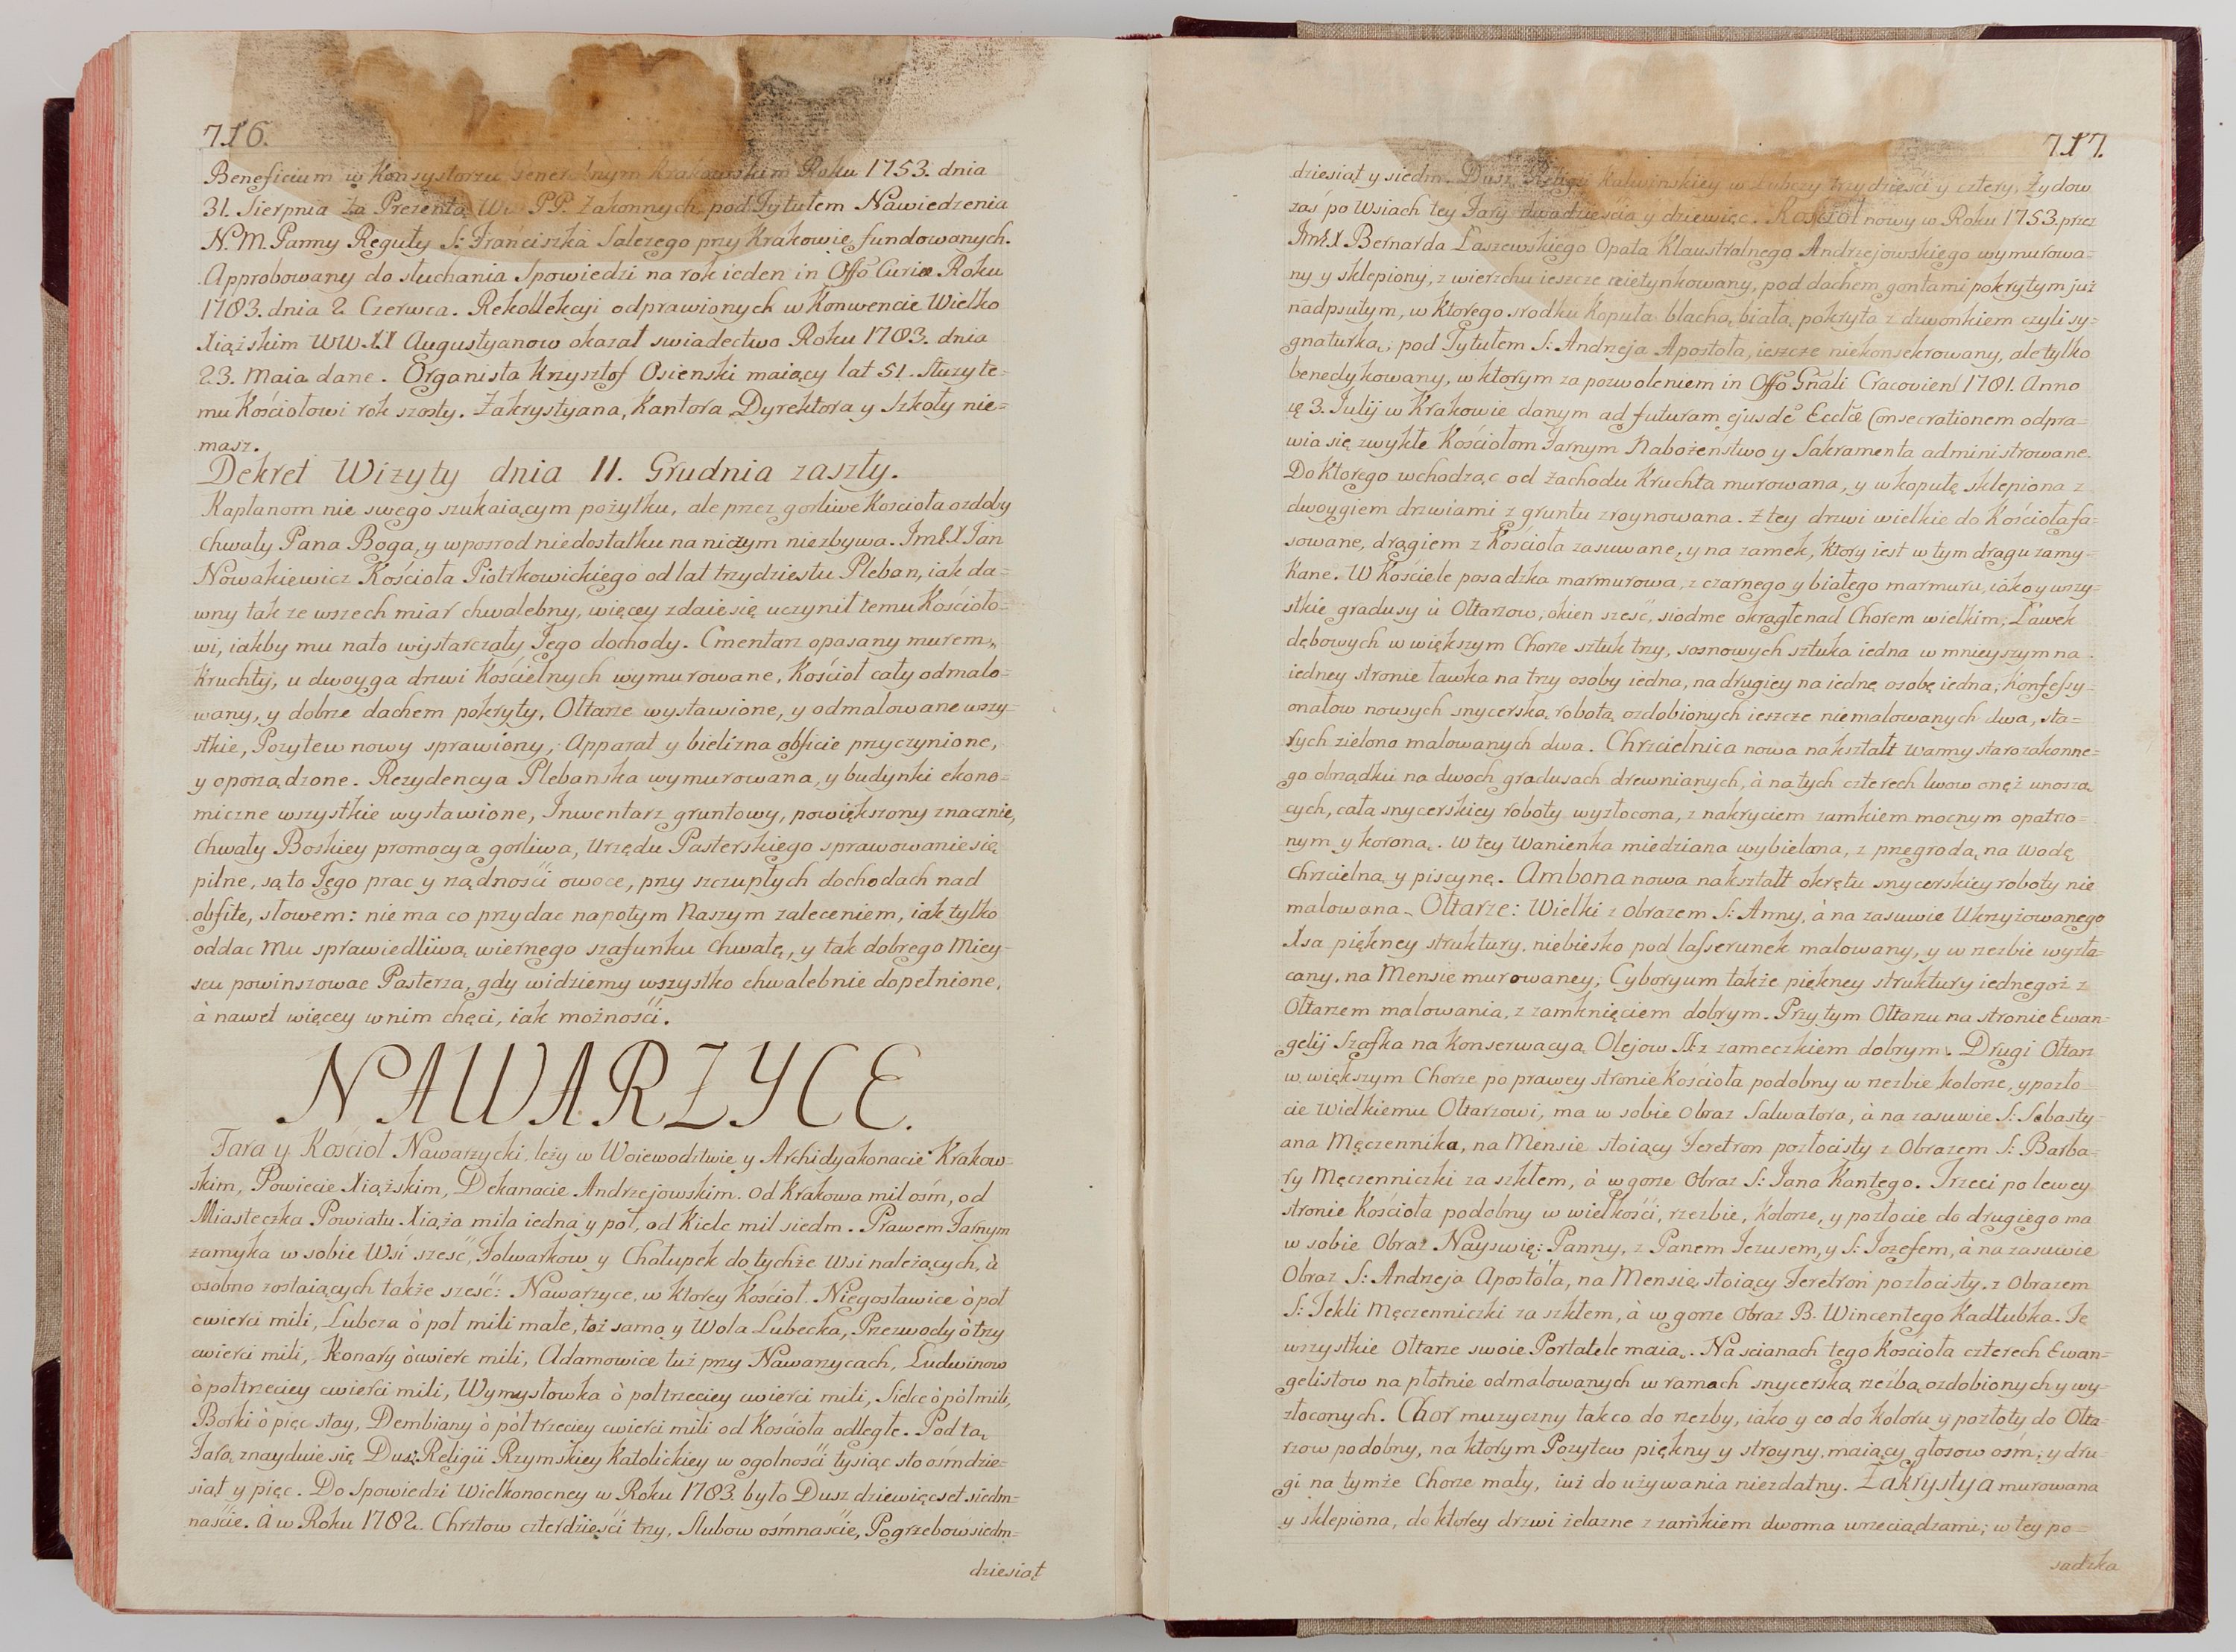 716.
Beneficium w Konsystorzu Generalnym Krakowskim Roku 1753. dnia
31. Sierpnia za Prezentą WW. PP. Zakonnych pod Tytułem Nawiedzenia
N. M. Panny Reguły S: Franciszka Salezego przy Krakowie fundowanych.
Approbowany do słuchania Spowiedzi na rok ieden in Offõ Curiæ Roku
1783. dnia 2. Czerwca. Rekollekcyi odprawionych w Konwencie Wielko
Xiążskim WW.XX Augustyanow okazał swiadectwo Roku 1783. dnia
23. Maia dane. Organista Krzysztof Osienski maiący lat 51. Służy te=
mu Kościołowi rok szosty. Zakrystyana, Kantora Dyrektora y Szkoły nie=
masz.
Dekret Wizyty dnia 11. Grudnia zaszły.
Kapłanom nie swego szukaiącym pożytku, ale przez gorliwe Kosciola ozdoby
chwały Pana Boga, y wposrod niedostatku na niczym niezbywa. JmX Jan
Nowakiewicz Kościoła Piotrkowickiego od lat trzydziestu Pleban, iak da=
wny tak ze wszech miar chwalebny, więcey zdaie się uczynił temu Kościoło=
wi, iakby mu nato wystarczały Jego dochody. Cmentarz opasany murem,
Kruchty, u dwoyga drzwi Kościelnych wymurowane, Kościoł cały odmalo=
wany, y dobrze dachem pokryty, Ołtarze wystawione, y odmalowane wszy=
stkie, Pozytew nowy sprawiony, Apparat y bielizna obficie przyczynione,
y oporządzone. Rezydencya Plebanska wymurowana, y budynki ekono=
miczne wszystkie wystawione, Inwentarz gruntowy, powiększony znacznie,
Chwały Boskiey promocya gorliwa, Urzędu Pasterskiego sprawowanie się
pilne, są to Jego prac y rządności owoce, przy szczupłych dochodach nad
obfite, słowem: nie ma co przydac napotym Naszym zaleceniem, iak tylko
oddac Mu sprawiedliwą wiernego szafunku chwałę, y tak dobrego Miey=
scu powinszowac Pasterza, gdy widziemy wszystko chwalebnie dopełnione,
à nawet więcey w nim chęci, iak możności.
NAWARZYCE.
Fara y Kościoł Nawarzycki leży w Woiewodztwie y Archidyakonacie Krakow=
skim, Powiecie Xiążskim, Dekanacie Andrzejowskim. Od Krakowa mil ośm, od
Miasteczka Powiatu Xiąża mila iedna y pół, od Kielc mil siedm. Prawem Farnym
zamyka w sobie Wsi sześć, Folwarkow y Chałupek do tychże Wsi należących, à
osobno zostaiących także sześć: Nawarzyce, w ktorey Kościoł. Niegosławice ò poł
cwierci mili, Lubcza ò poł mili małe, toż samo y Wola Lubecka, Przezwody ò trzy
cwierci mili, Konary ò cwierc mili, Adamowice tuż przy Nawarzycach, Ludwinow
ò połtrzeciey cwierci mili, Wymysłowka ò połtrzeciey cwierci mili, Sielce ò pół mili,
Borki ò pięc stay, Dembiany ò półtrzeciey cwierci mili od Kościoła odległe. Pod tą
Farą znayduie się Dusz Religii Rzymskiey Katolickiey w ogolności tysiąc sto ośmdzie=
siąt y pięc. Do Spowiedzi Wielkonocney w Roku 1783. było Dusz dziewięcset siedm=
naście. à w Roku 1782. Chrztow czterdzieści trzy, Slubow ośmnaście, Pogrzebow siedm=
dziesiąt
717.
dziesiąt y siedm. Dusz Religii Kalwinskiey w Lubczy trzydzieści y cztery, Żydow
zaś po Wsiach tey Fary dwadzieścia y dziewięc. Kościoł nowy w Roku 1753. przez
JmX Bernarda Laszewskiego Opata Klaustralnego Andrzejowskiego wymurowa=
ny y sklepiony, z wierzchu ieszcze nietynkowany, pod dachem gontami pokrytym już
nadpsutym, w ktorego srodku Kopuła blachą białą pokryta z dzwonkiem czyli sy=
gnaturką; pod Tytułem S: Andrzeja Apostoła, ieszcze niekonsekrowany, ale tylko
benedykowany, w ktorym za pozwoleniem in Offõ Gñali Cracovien 1781. Anno
3. Julij w Krakowie danym ad futuram ejusdẽ Ecclæ Consecrationem odpra=
wia się zwykłe Kościołom Farnym Nabożeństwo y Sakramenta administrowane.
Do Ktorego wchodząc od zachodu Kruchta murowana, y w kopułę sklepiona z
dwoygiem drzwiami z gruntu zroynowana. Z tey drzwi wielkie do Kościoła fa=
sowane, drągiem z Kościoła zasuwane, y na zamek, ktory iest w tym drągu zamy=
kane. W Kościele posadzka marmurowa, z czarnego y białego marmuru, iako y wszy=
stkie gradusy ù Ołtarzow, okien sześć, siodme okrągłe nad Chorem wielkim; Ławek
dębowych w większym Chorze sztuk trzy, sosnowych sztuka iedna w mnieyszym na
iedney stronie ławka na trzy osoby iedna, na drugiey na iednę osobę iedna; Konfessy=
onałow nowych snycerską robotą ozdobionych ieszcze niemalowanych dwa, sta=
rych zielono malowanych dwa. Chrzcielnica nowa nakształt wanny starozakonne=
go obrządku na dwoch gradusach drewnianych, à na tych czterech lwow onęż unoszą
cych, cała snycerskiey roboty wyzłocona, z nakryciem zamkiem mocnym opatrzo=
nym y koroną. W tey Wanienka miedziana wybielana, z przegrodą na Wodę
Chrzcielną y piscynę. Ambona nowa nakształt okrętu snycerskiey roboty nie
malowana. Ołtarze: Wielki z Obrazem S: Anny, à na zasuwie Ukrzyżowanego
Xsa piękney struktury, niebiesko pod lasserunek malowany, y w rzezbie wyzła=
cany, na Mensie murowaney, Cyboryum także piękney struktury iednegoż z
Ołtarzem malowania, z zamknięciem dobrym. Przy tym Ołtarzu na stronie Ewan=
gelij Szafka na Konserwacyą Olejow SS: z zameczkiem dobrym. Drugi Ołtarz
w większym Chorze po prawey stronie Kościoła podobny w rzezbie, kolorze, y pozło=
cie Wielkiemu Ołtarzowi, ma w sobie Obraz Salwatora, à na zasuwie S: Sebasty=
ana Męczennika, na Mensie stoiący Feretron pozłocisty z Obrazem S: Barba=
ry Męczenniczki za szkłem, à w gorze Obraz S: Jana Kantego. Trzeci po lewey
stronie Kościoła podobny w wielkości, rzezbie, Kolorze, y pozłocie do drugiego ma
w sobie Obraz Nayswię: Panny, z Panem Jezusem, y S: Jozefem, à na zasuwie
Obraz S: Andrzeja Apostoła, na Mensie stoiący Feretron pozłocisty, z Obrazem
S: Tekli Męczenniczki za szkłem, à w gorze Obraz B. Wincentego Kadłubka. Te
wszystkie Ołtarze swoie Portatele maią. Na scianach tego Kościoła czterech Ewan=
gelistow na płotnie odmalowanych w ramach snycerską rzeźbą ozdobionych y wy=
złoconych. Chor muzyczny tak co do rzezby, iako y co do Koloru y pozłoty do Ołta=
rzow podobny, na ktorym Pozytew piękny y stroyny, maiący głosow ośm; y dru=
gi na tymże Chorze mały, iuż do używania niezdatny. Zakrystya murowana
y sklepiona, do ktorey drzwi żelazne z zamkiem dwoma wrzeciądzami; w tey po=
sadzka